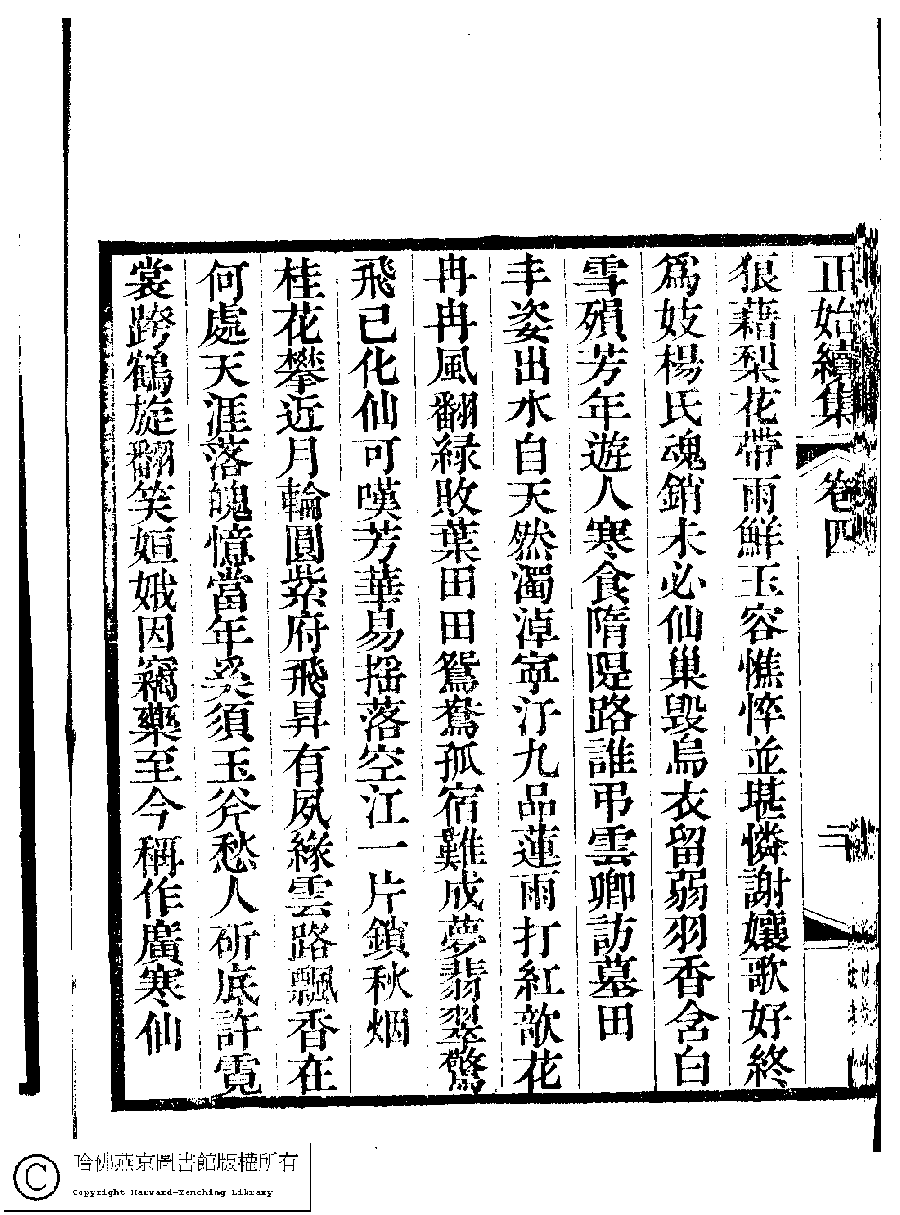 正始續集 卷四 二
狼藉梨花帶雨鮮玉容憔悴並堪憐謝孃歌好終
爲妓楊氏魂銷未必仙巢毀烏衣留弱羽香含白
雪殞芳年遊人寒食隋隄路誰弔雲卿訪墓田
丰姿出水自天然濁淖寧汙九品蓮雨打紅欹花
冉冉風翻綠敗葉田田鴛鴦孤宿難成夢翡翠驚
飛已化仙可嘆芳華易搖落空江一片鎖秋烟
桂花攀近月輪圓紫府飛昇有夙緣雲路飄香在
何處天涯落魄憶當年奚須玉斧愁人斫底許霓
裳跨鶴旋翻笑姮娥因竊藥至今稱作廣寒仙
哈佛燕京圖書館版權所有
Copyright Harvard-Yenching Library